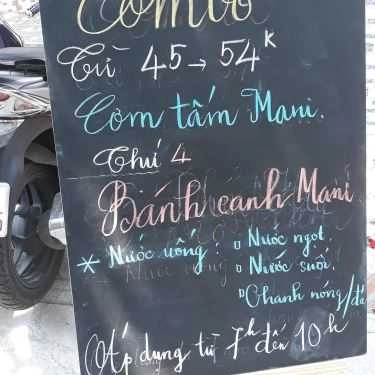 Combo
Từ 45 → 54k
Cơm tấm Mani.
Thứ 4
Bánh canh Mani
* Nước uống: □ Nước ngọt
□ Nước suối.
□ Chanh nóng/đá
Áp dụng từ 7h đến 10h